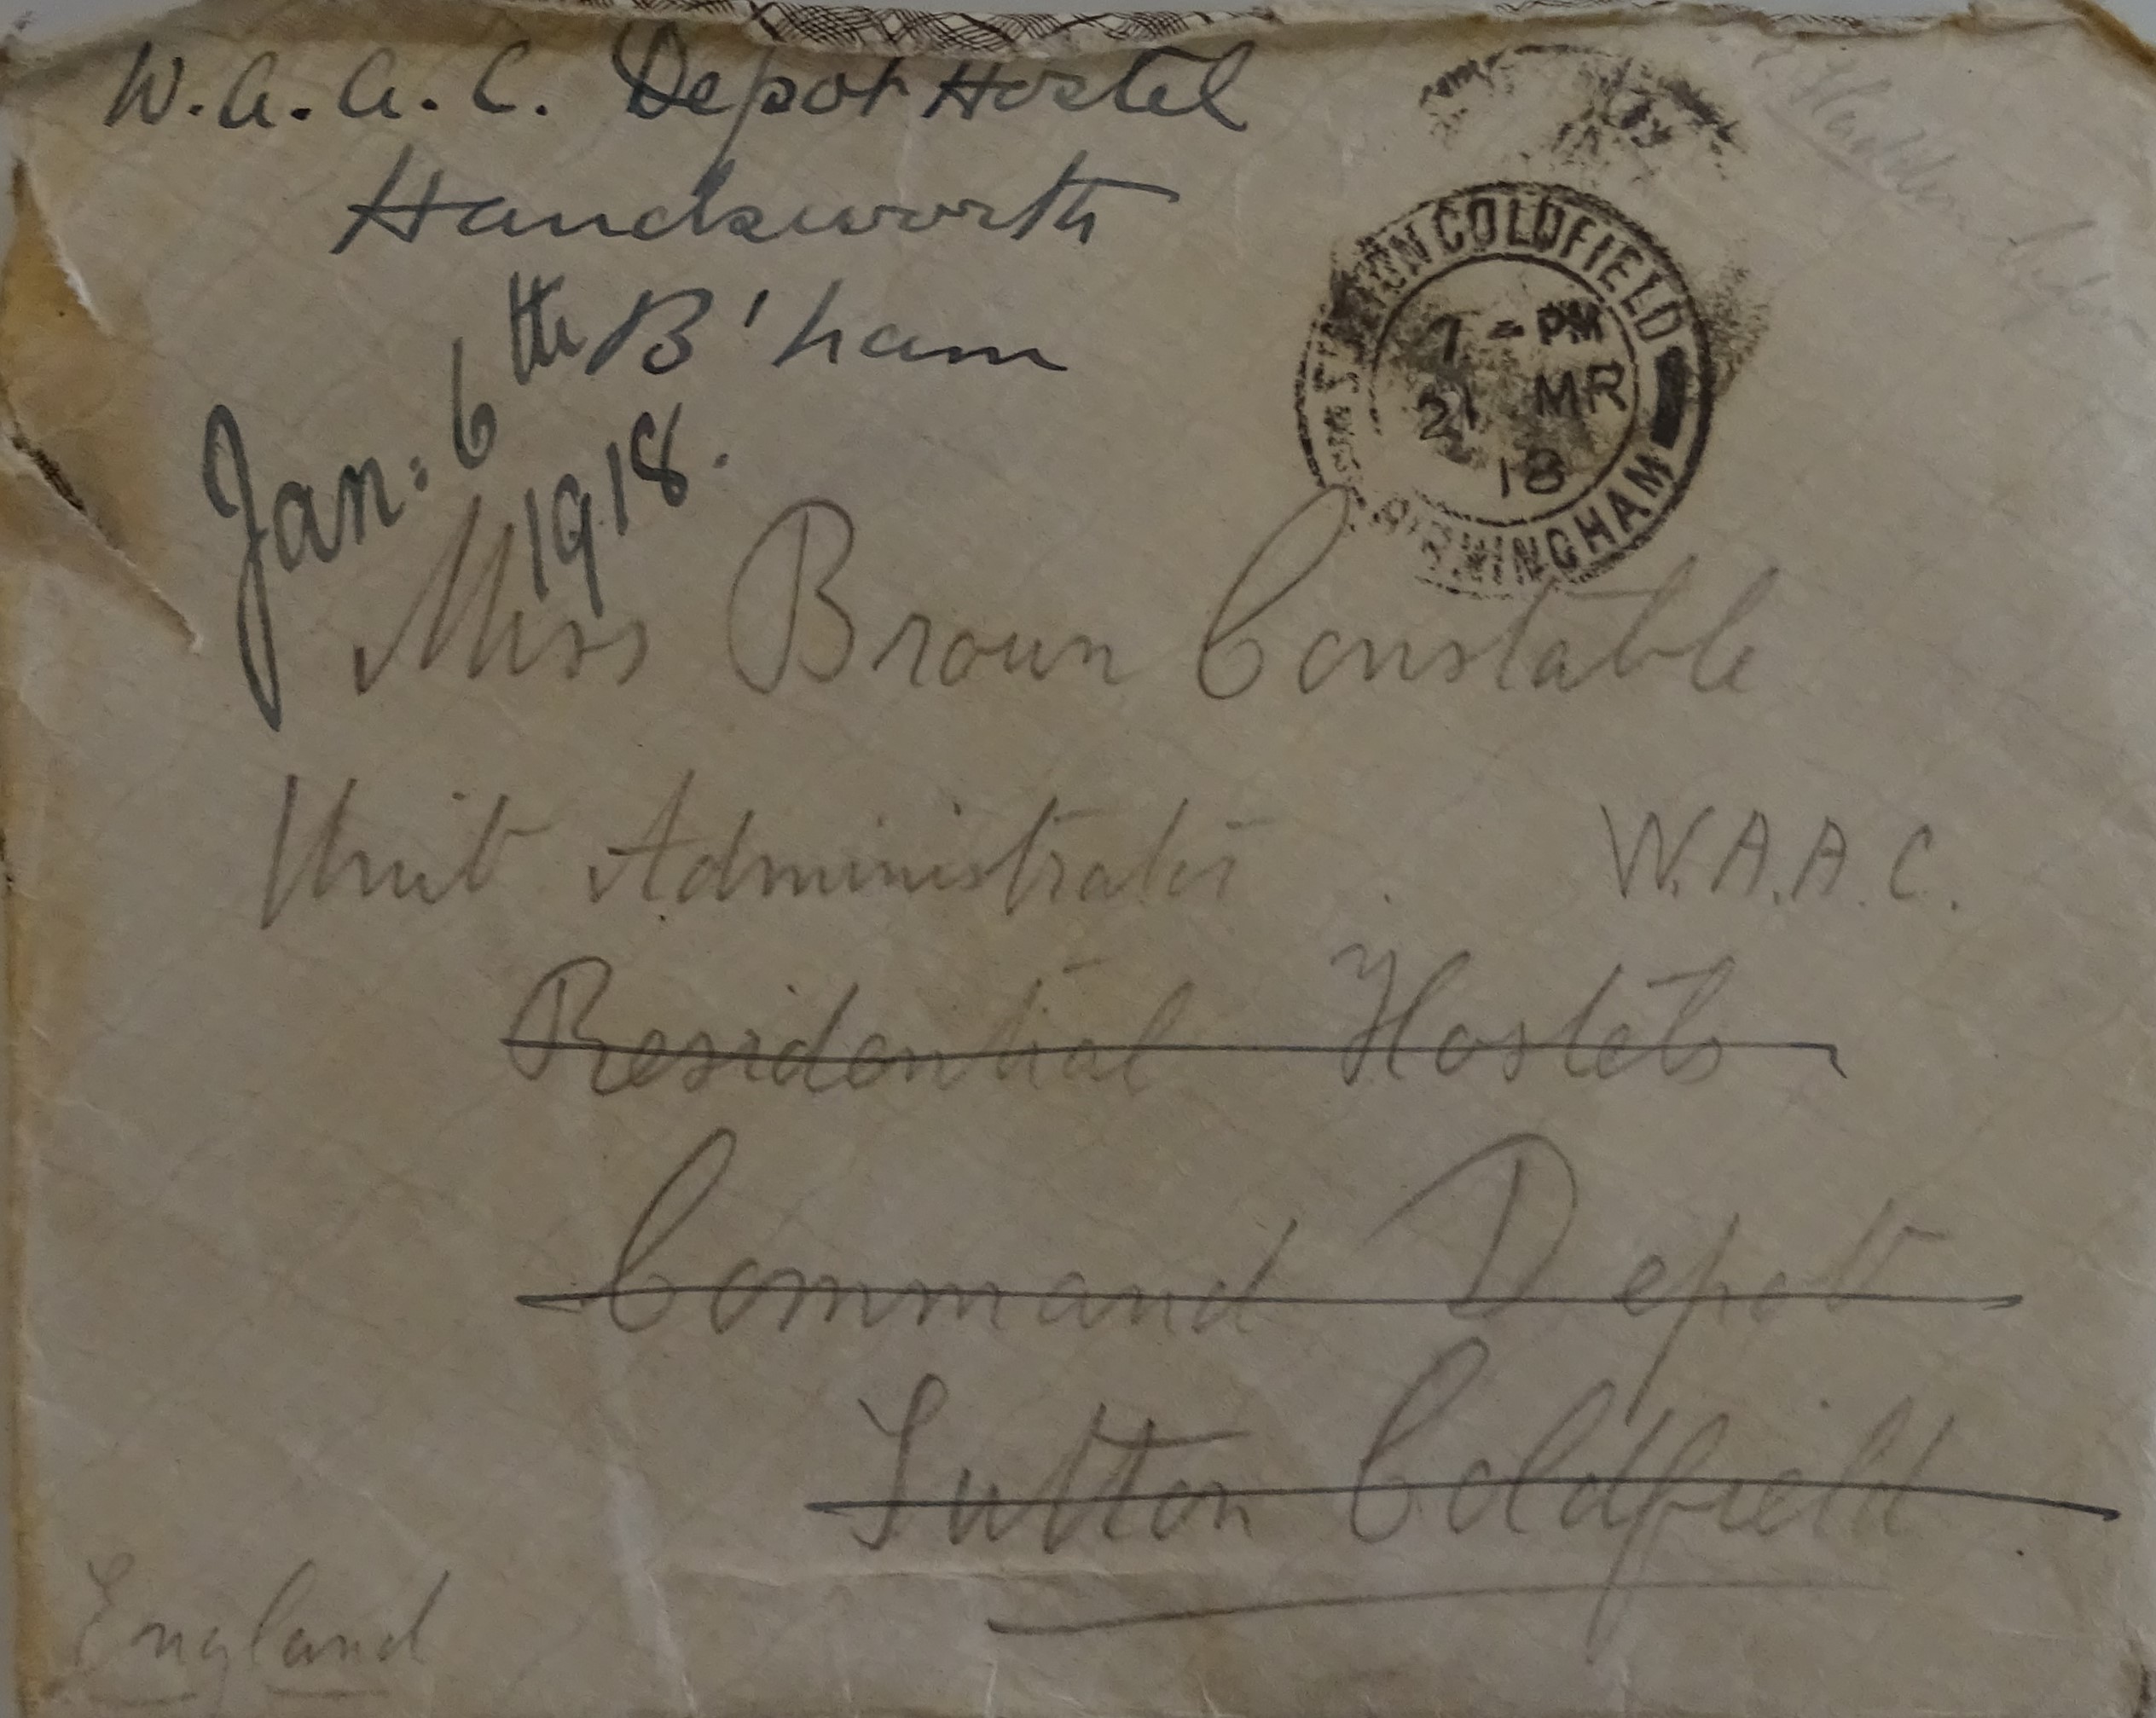 W.A.A.C. Depot Hostel
Handsworth
B'ham
Jan: 6th
1918.
SUTTON COLDFIELD
7 - PM
21 MR
18
BIRMINGHAM
Miss Brown Constable
Unit Administrator . W.A.A.C.
Residential Hostels
Command Depot
Sutton Coldfield
England